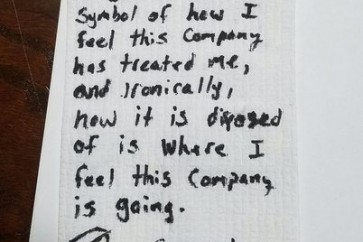 Symbol of how I
feel this Company
has treated me,
and Ironically,
how it is disposed
of is where I
feel this Company
is going.